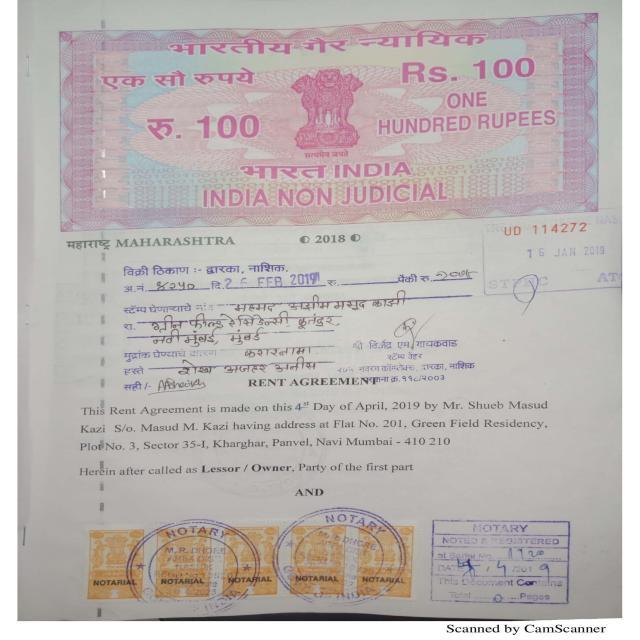 भारतीय गैर न्यायिक
एक सौ रुपये
Rs. 100
रु. 100
ONE
HUNDRED RUPEES
सत्यमेव जयते
भारत INDIA
INDIA NON JUDICIAL
महाराष्ट्र MAHARASHTRA
2018
UD 114272
16 JAN 2019
विक्री ठिकाण :- द्वारका, नाशिक.
अ.नं. ४२५० दि. 26 FEB 2019 रु. पैकी रु.
स्टॅम्प घेणाऱ्याचे नांव महमद मसुद काझी
रा. ग्रीन फील्ड रेसिडेन्सी
नवी मुंबई, मुंबई
मुद्रांक घेण्याचे कारण करारनामा
हस्ते शेख अजहर अनीस
सही /-
श्री विजेंद्र एम. गायकवाड
स्टॅम्प वेंडर
द्वारका, नाशिक
RENT AGREEMENT
This Rent Agreement is made on this 4st Day of April, 2019 by Mr. Shueb Masud
Kazi S/o. Masud M. Kazi having address at Flat No. 201, Green Field Residency,
Plot No. 3, Sector 35-I, Kharghar, Panvel, Navi Mumbai - 410 210
Herein after called as Lessor / Owner, Party of the first part
AND
NOTARY
M. R. DHORE
NOTARY
NOTARIAL NOTARIAL NOTARIAL NOTARIAL NOTARIAL
NOTARY
NOTED & REGISTERED
at Serial No. 1120
4/2019
This Document Contains
Total Pages
Scanned by CamScanner